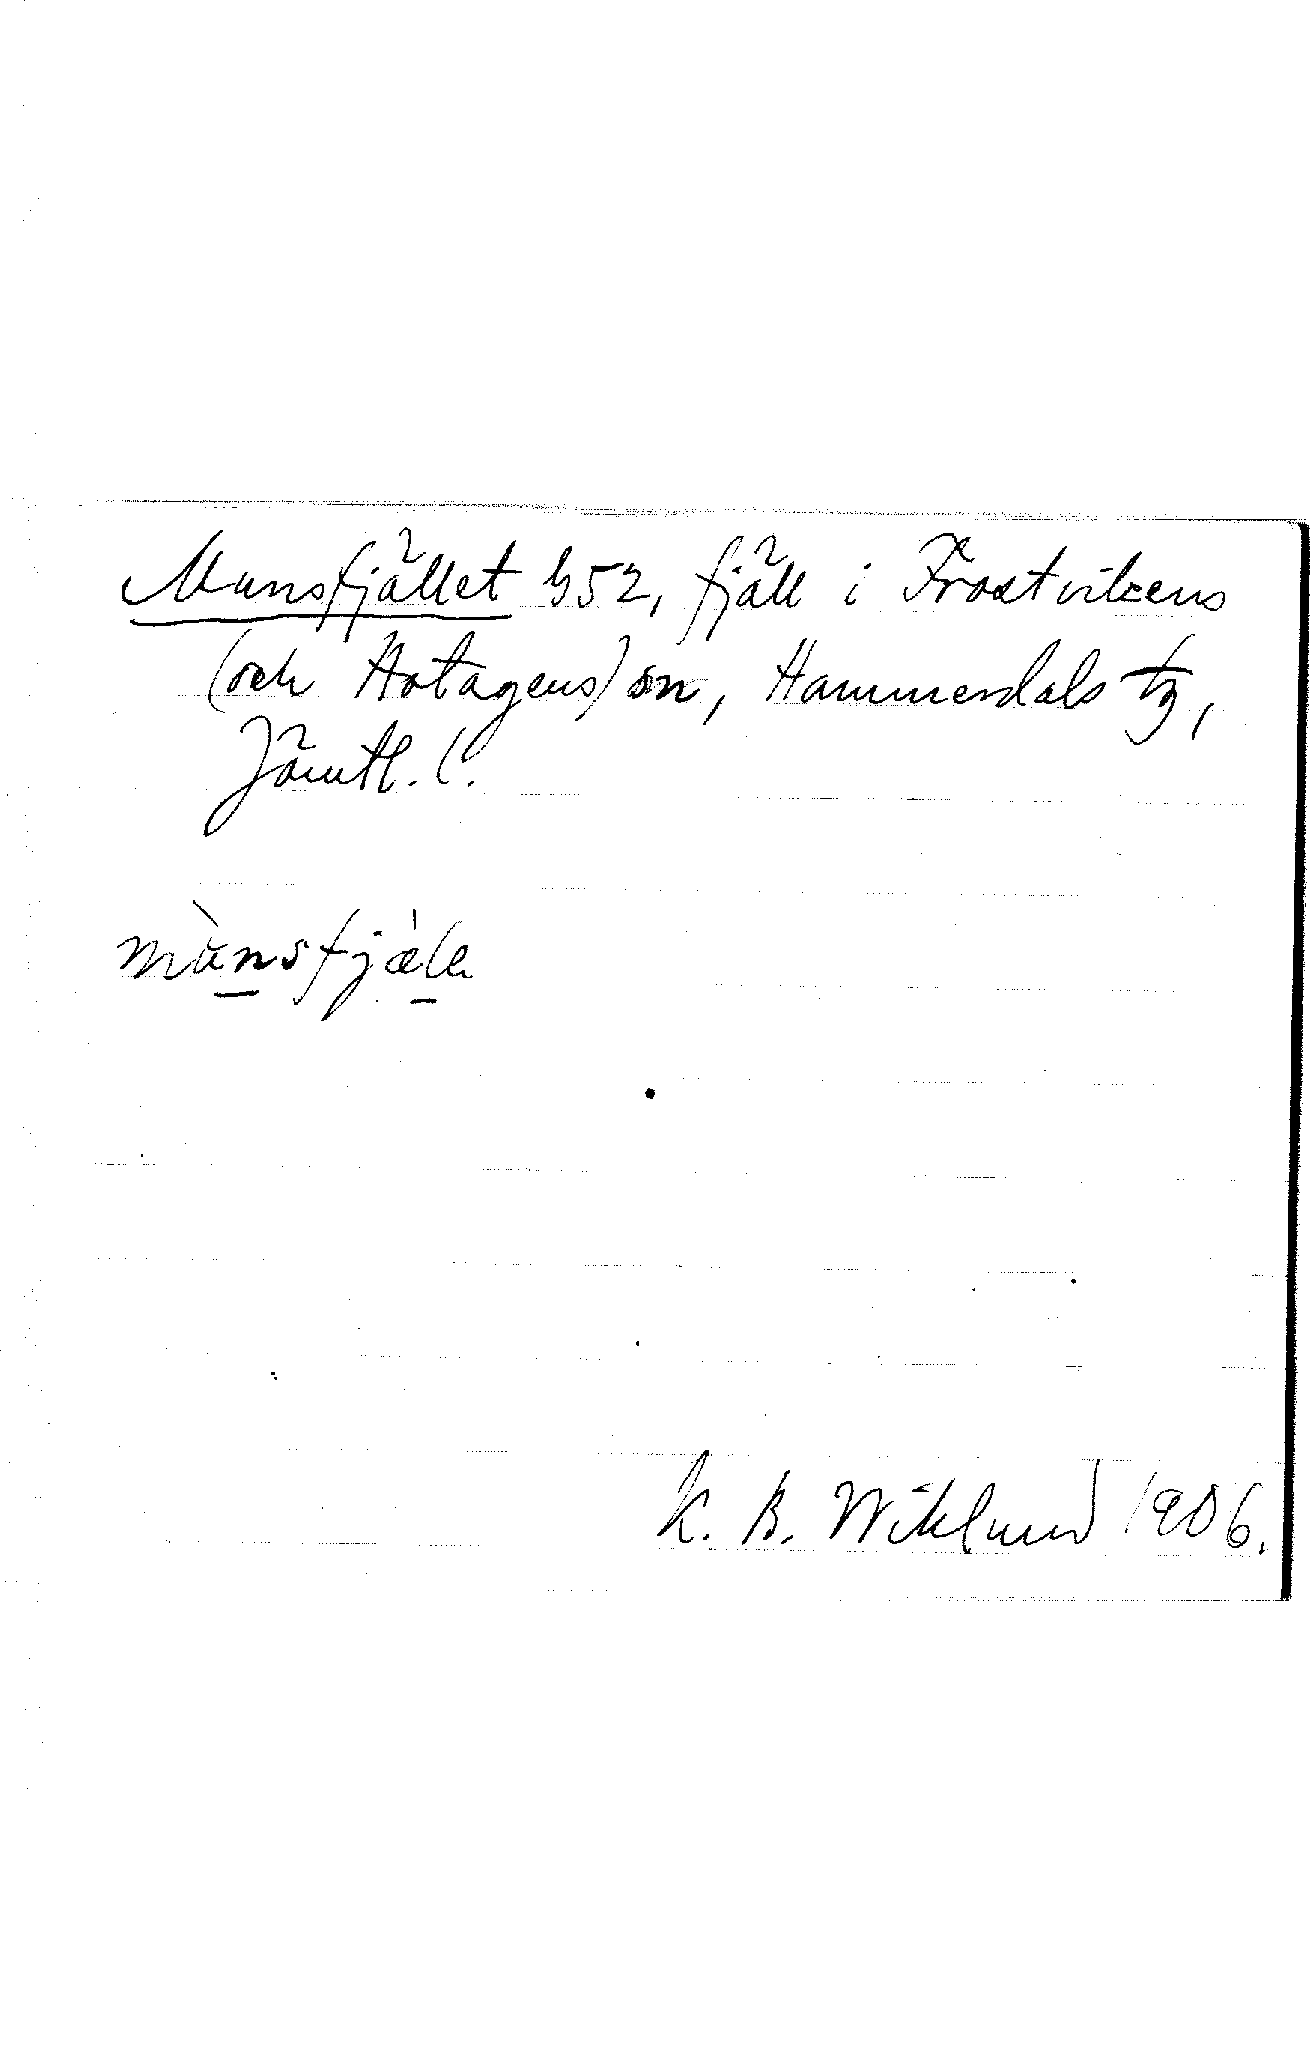 Munsfjället b52, fjäll i Frostvikens
(och Hotagens) sn, Hammerdals tg,
Jämtl. l.
mùnsfjæ̀lɐ
K. B. Wiklund 1906.